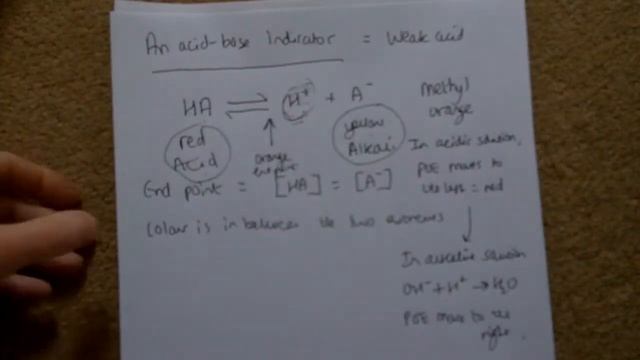 An acid-base Indicator = weak acid
HA ⇌ H⁺ + A⁻
red
Acid
orange
end point
yellow
Alkali
End point = [HA] = [A⁻]
Colour is in between the two extremes
Methyl
orange
In acidic solution,
POE moves to
the left = red
↓
In alkaline solution
OH⁻ + H⁺ → H₂O
POE moves to the
right.